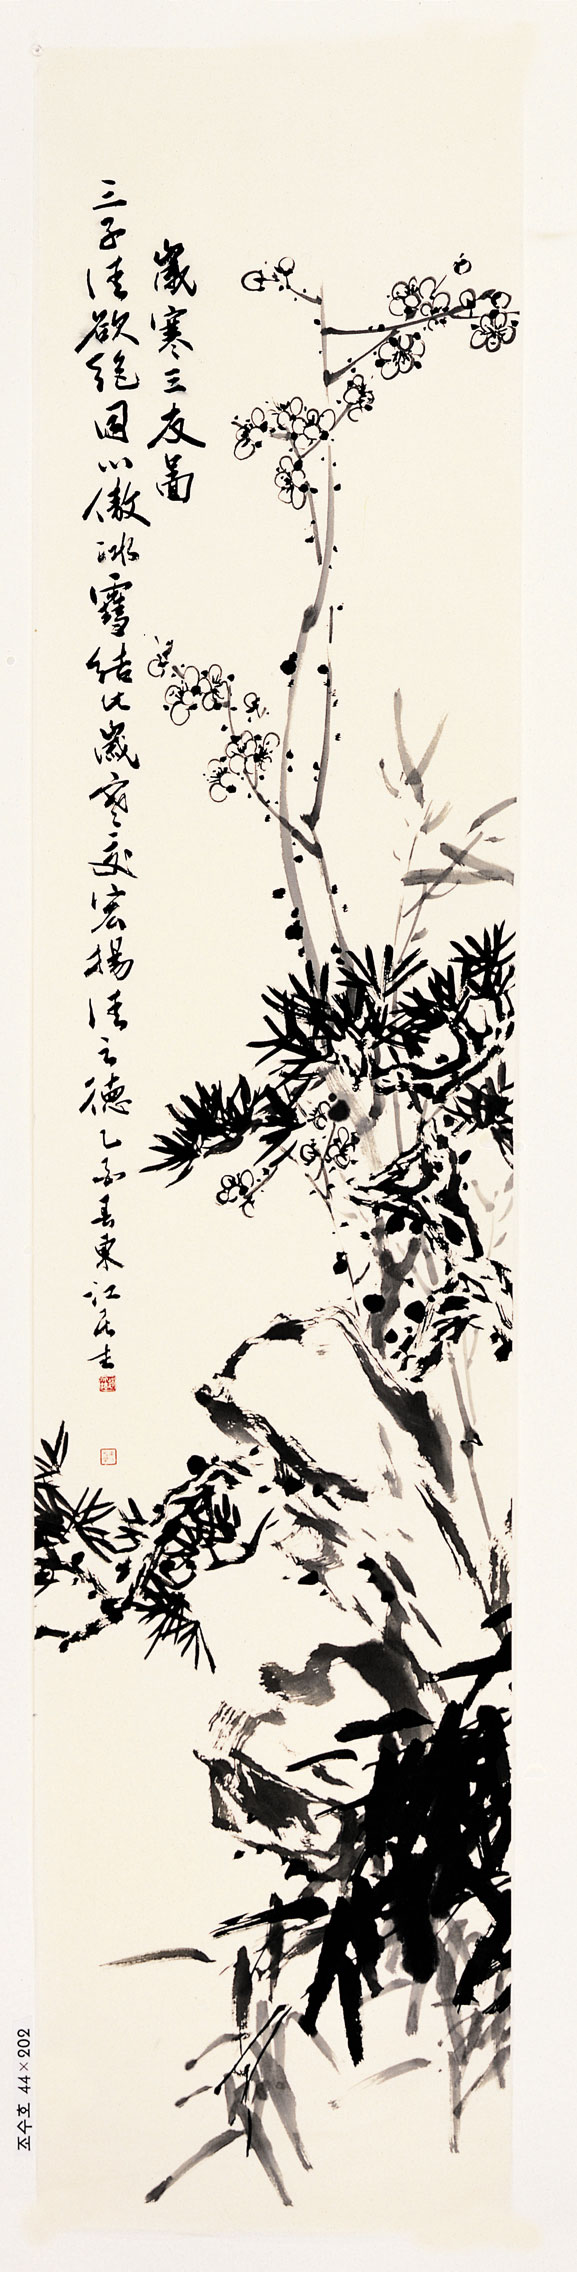 歲寒三友圖
三子清欲絶固以傲冰雪結此歲寒交宏揚清之德乙亥春東江居士
조수호 44×202